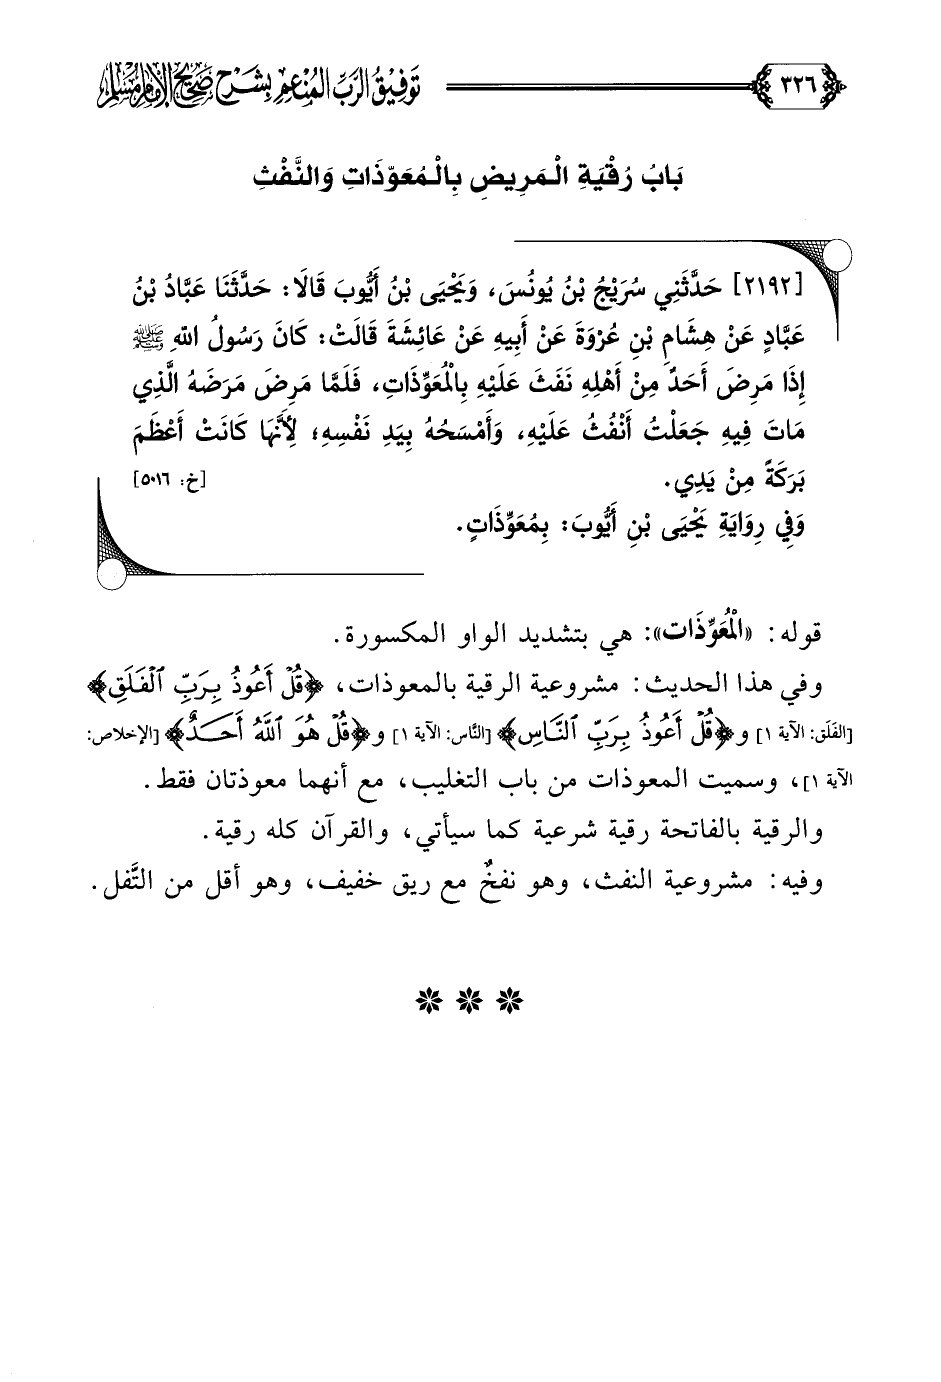 ٣٢٦
توفيق الرب المنعم بشرح صحيح الإمام مسلم
بَابُ رُقْيَةِ الْمَرِيضِ بِالْمُعَوِّذَاتِ وَالنَّفْثِ
[٢١٩٢] حَدَّثَنِي سُرَيْجُ بْنُ يُونُسَ، وَيَحْيَى بْنُ أَيُّوبَ قَالَا: حَدَّثَنَا عَبَّادُ بْنُ
عَبَّادٍ عَنْ هِشَامِ بْنِ عُرْوَةَ عَنْ أَبِيهِ عَنْ عَائِشَةَ قَالَتْ: كَانَ رَسُولُ اللهِ ﷺ
إِذَا مَرِضَ أَحَدٌ مِنْ أَهْلِهِ نَفَثَ عَلَيْهِ بِالْمُعَوِّذَاتِ، فَلَمَّا مَرِضَ مَرَضَهُ الَّذِي
مَاتَ فِيهِ جَعَلْتُ أَنْفُثُ عَلَيْهِ، وَأَمْسَحُهُ بِيَدِ نَفْسِهِ؛ لِأَنَّهَا كَانَتْ أَعْظَمَ
بَرَكَةً مِنْ يَدِي. [خ: ٥٠١٦]
وَفِي رِوَايَةِ يَحْيَى بْنِ أَيُّوبَ: بِمُعَوِّذَاتٍ.
قوله: «الْمُعَوِّذَات»: هي بتشديد الواو المكسورة.
وفي هذا الحديث: مشروعية الرقية بالمعوذات، ﴿قُلۡ أَعُوذُ بِرَبِّ ٱلۡفَلَقِ﴾
[الفَلَق: الآية ١] و﴿قُلۡ أَعُوذُ بِرَبِّ ٱلنَّاسِ﴾ [النَّاس: الآية ١] و﴿قُلۡ هُوَ ٱللَّهُ أَحَدٌ﴾ [الإخلاص:
الآية ١]، وسميت المعوذات من باب التغليب، مع أنهما معوذتان فقط.
والرقية بالفاتحة رقية شرعية كما سيأتي، والقرآن كله رقية.
وفيه: مشروعية النفث، وهو نفخٌ مع ريق خفيف، وهو أقل من التَّفل.